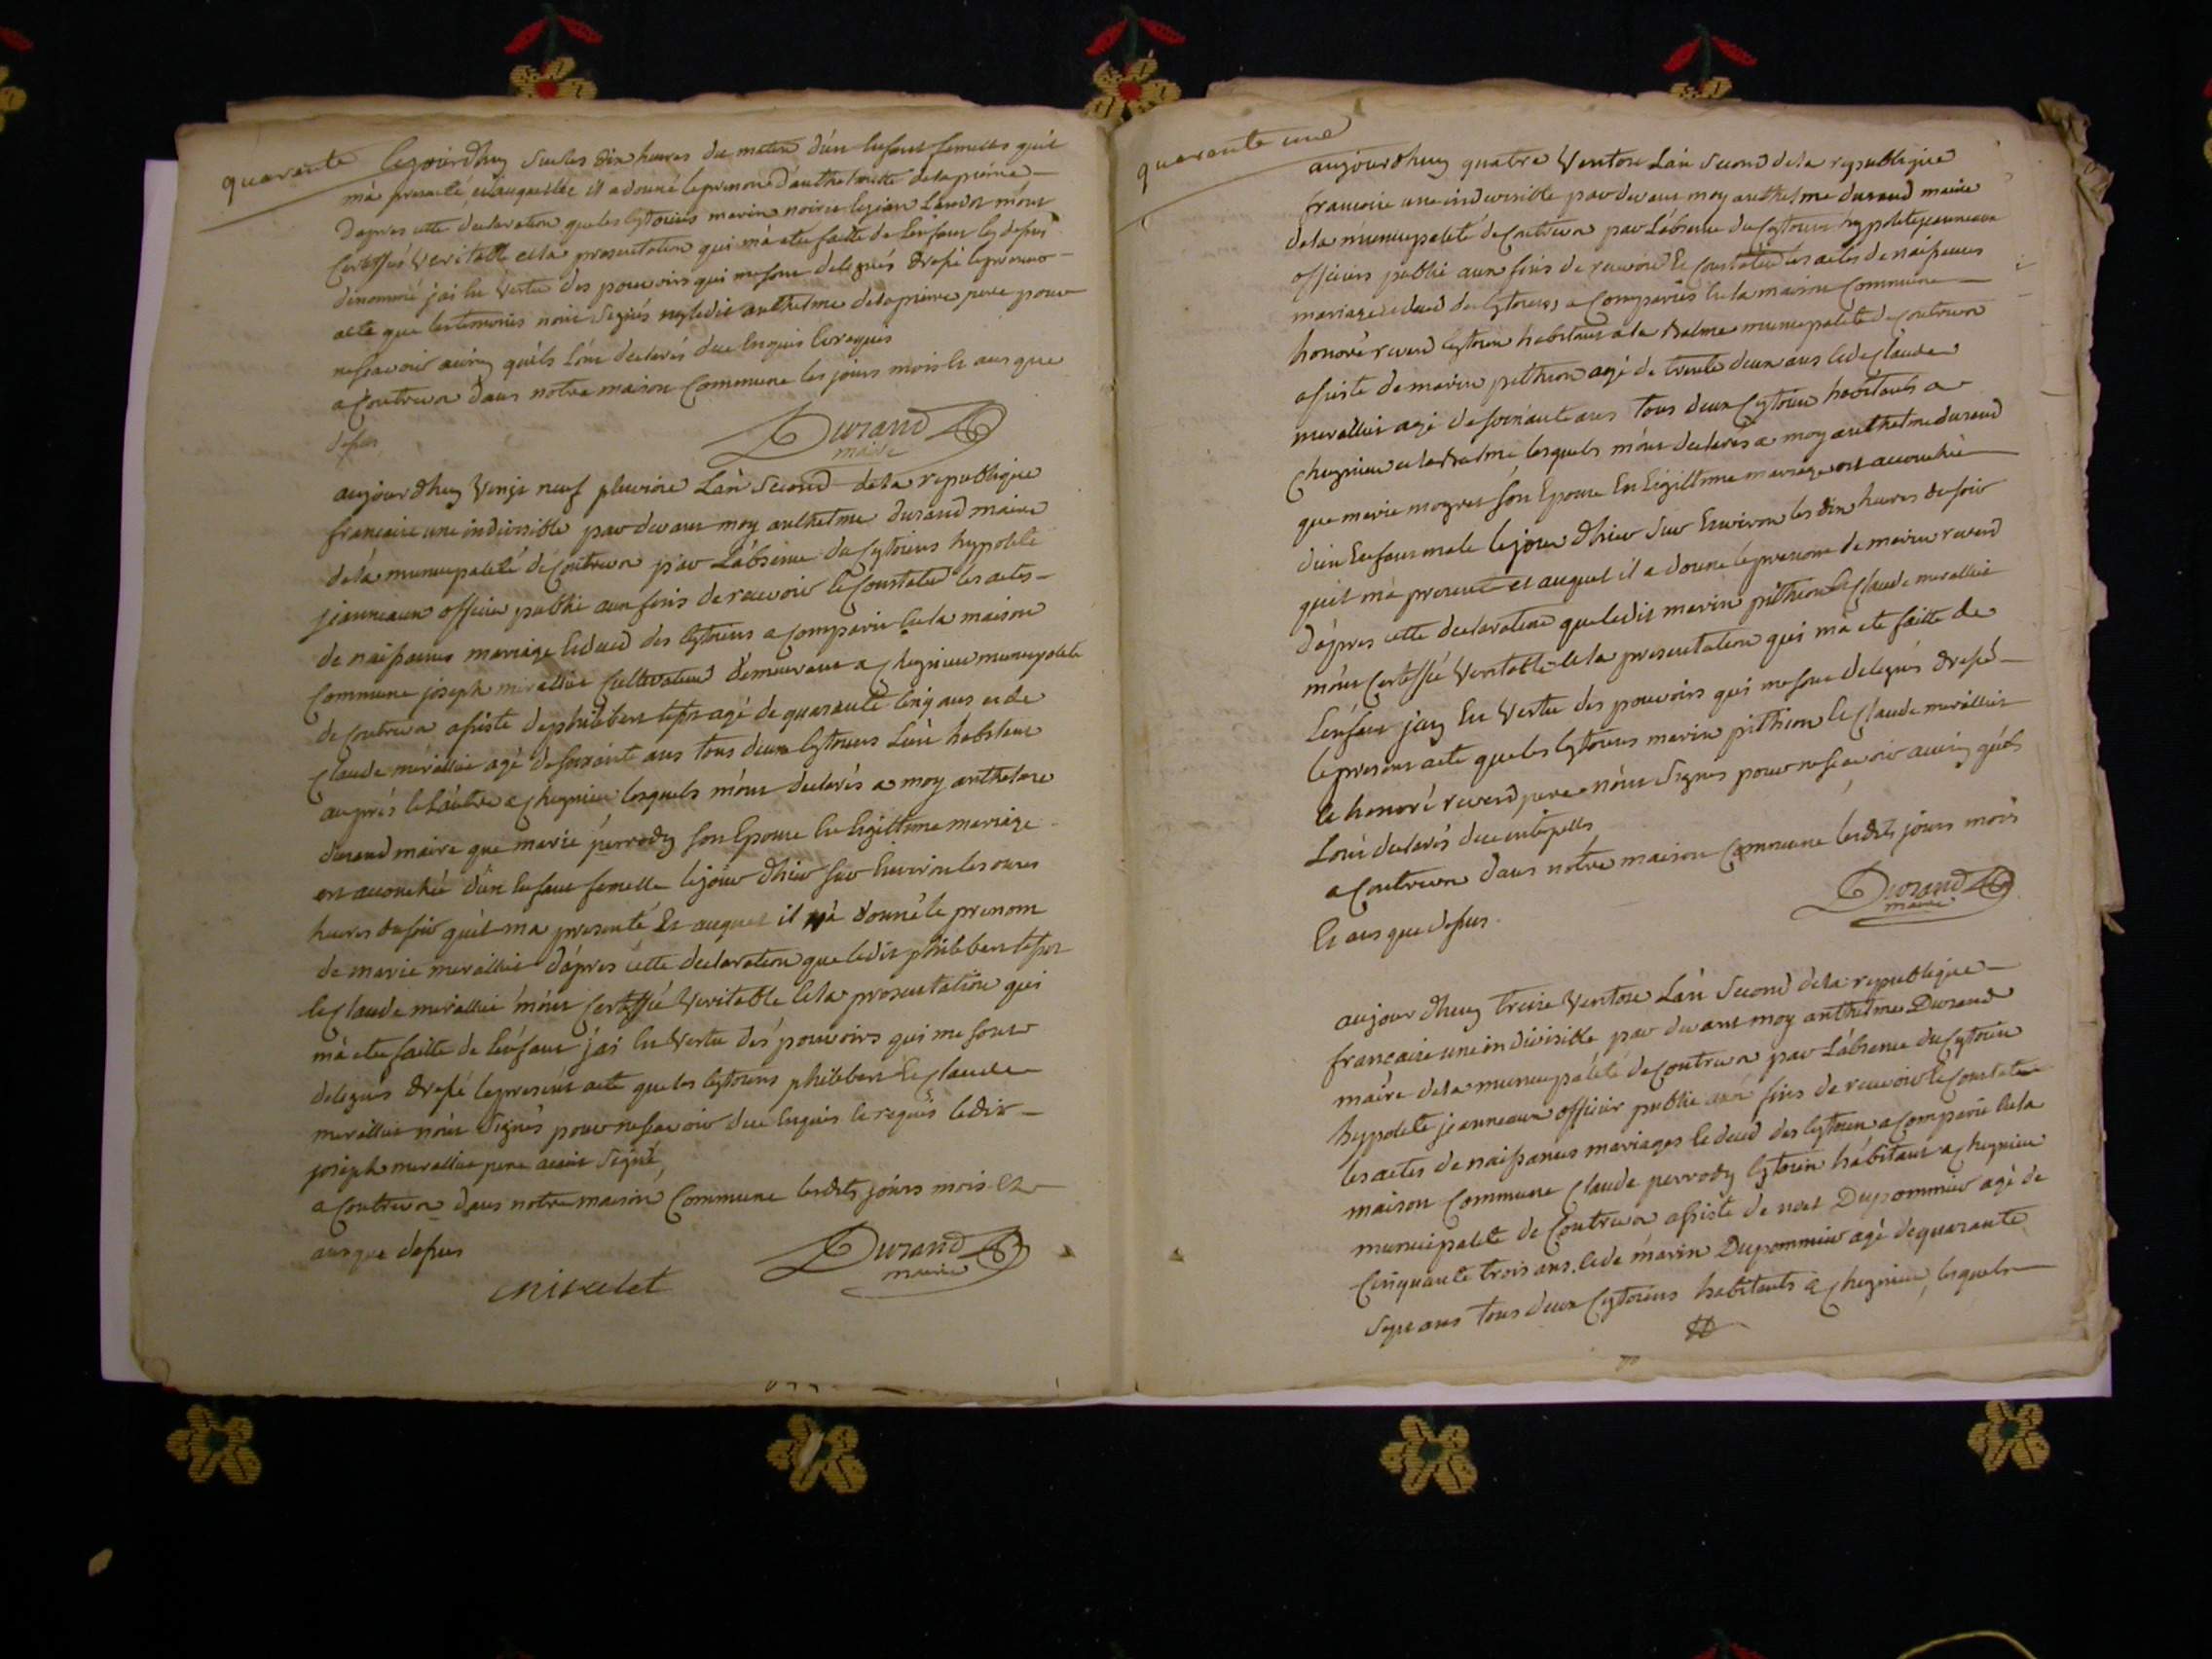 quarante
le jourdhuy sur les dix heures du matin d'un enfant femelle qu'il
m'a presenté, et auquelle il a donné le prenom d'anthelmette delapierre
d'apres cette declaration que les cytoiens marin et jean m'ont
certiffié veritable et la presentation qui m'a ete faitte de l'enfant cy dessus
denommé j'ai en vertu des pouvoirs qui me sont delegués dressé le present
acte que les temoins n'ont signés ny ledit anthelme delapierre pere pour
ne scavoir ainsy qu'ils l'ont declarés due enquis et requis
a Contrevoz dans notre maison commune les jours mois et ans que
dessus
Durand
maire
aujourdhuy vingt neuf pluviose l'an second de la republique
francaise une indivisible par devant moy anthelme durand maire
de la municipalité de Contrevoz par l'absence du cytoiens hypolite
jeanneaux officier public aux fins de recevoir et constater les actes
de naissances mariage et deced des cytoiens a comparu en la maison
commune joseph mirallier cultivateur demeurant a Cheignieu municipalité
de Contrevoz assisté de philibert agé de quarante cinq ans et de
Claude mirallier agé de soixante ans tous deux cytoiens l'un habitant
auprés et l'autre a Cheignieu lesquels m'ont declarés a moy anthelme
durand maire que marie perrody son epouse en legittime mariage
est accouchée d'un enfant femelle le jour d'hier sur environ les onzes
heures du soir qu'il m'a presenté et auquel il a donné le prenom
de marie mirallier d'apres cette declaration que ledit philibert
et Claude mirallier m'ont certiffié veritable et la presentation qui
m'a ete faitte de l'enfant j'ai en vertu des pouvoirs qui me sont
delegués dressé le present acte que les cytoiens philibert et Claude
mirallier n'ont signés pour ne scavoir due enquis et requis ledit
joseph mirallier pere aiant signé,
a Contrevoz dans notre maison commune lesdits jours mois et
ans que dessus
Durand
maire
quarante une
aujourdhuy quatre ventose l'an second de la republique
francoise une indivisible par devant moy anthelme durand maire
de la municipalité de Contrevoz par l'absence du cytoien hypolite jeanneaux
officiers public aux fins de recevoir et constater les actes de naissances
mariage et deced des cytoiens, a comparus en la maison commune
honoré revend cytoien habitant a la Balme municipalité de Contrevoz
assisté de marin pithion agé de trente deux ans et de Claude
mirallier agé de soixante ans tous deux cytoien habitants a
Cheignieu et la Balme lesquels m'ont declarés a moy anthelme durand
que marie moyret son epouse en legittime mariage est accouchée
d'un enfant male le jour d'hier sur environ les dix heures du soir
qu'il m'a presenté et auquel il a donné le prenom de marin revend
d'apres cette declaration que ledit marin pithion et Claude mirallier
m'ont certiffié veritable et la presentation qui m'a ete faitte de
l'enfant jay en vertu des pouvoirs qui me sont delegués dressé
le present acte que les cytoiens marin pithion et Claude mirallier
et honoré revend pere n'ont signés pour ne scavoir ainsy qu'ils
l'ont declarés due
a Contrevoz dans notre maison commune lesdits jours mois
et ans que dessus
Durand
maire
aujourdhuy treize ventose l'an second de la republique
francaise une indivisible par devant moy anthelme Durand
maire de la municipalité de Contrevoz par l'absence du cytoien
hypolite jeanneaux officier public aux fins de recevoir et constater
les actes de naissances mariages et deced des cytoien a comparu en la
maison commune Claude perrody cytoien habitant a Cheignieu
municipalité de Contrevoz assisté de noel Dupommier agé de
cinquante trois ans, et de marin Dupommier agé de quarante
sept ans tous deux cytoiens habitants a Cheignieu, lesquels